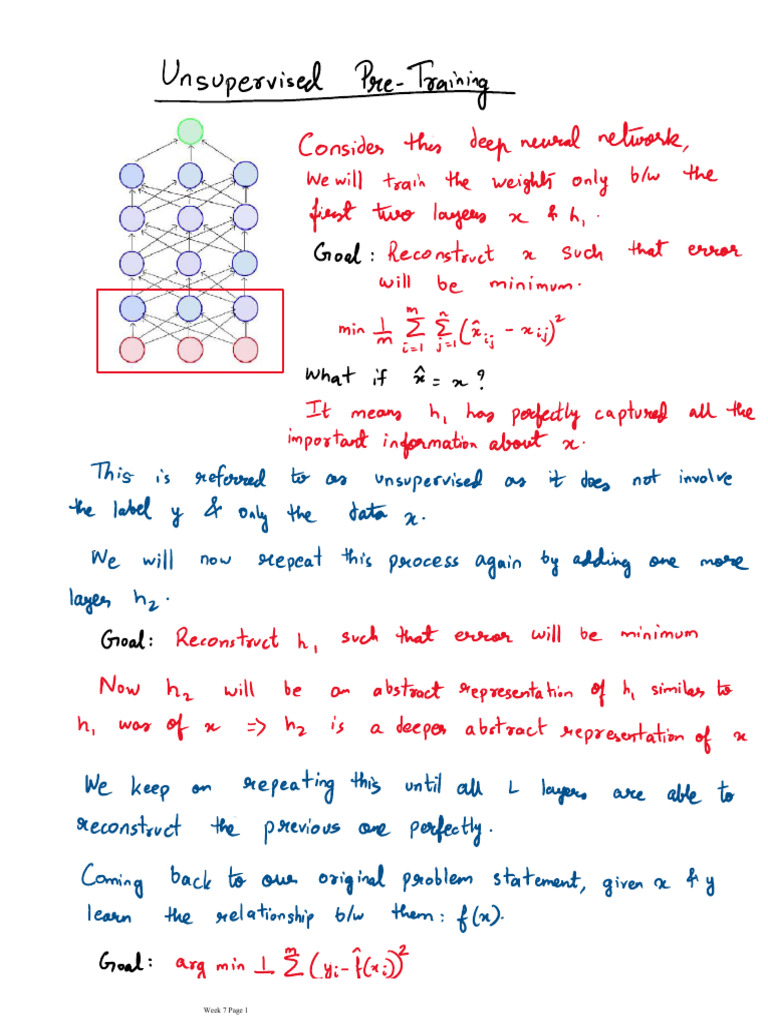 Unsupervised Pre-Training
Consider this deep neural network,
We will train the weights only b/w the
first two layers x & h₁.
Goal: Reconstruct x such that error
will be minimum.
min 1/m Σᵢ₌₁ᵐ Σⱼ₌₁ⁿ (x̂ᵢⱼ - xᵢⱼ)²
What if x̂ = x?
It means h₁ has perfectly captured all the
important information about x.
This is referred to as unsupervised as it does not involve
the label y & only the data x.
We will now repeat this process again by adding one more
layer h₂.
Goal: Reconstruct h₁ such that error will be minimum
Now h₂ will be an abstract representation of h₁ similar to
h₁ was of x => h₂ is a deeper abstract representation of x
We keep on repeating this until all L layers are able to
reconstruct the previous one perfectly.
Coming back to our original problem statement, given x & y
learn the relationship b/w them: f(x).
Goal: arg min 1/m Σᵢ₌₁ᵐ (yᵢ - f̂(xᵢ))²
Week 7 Page 1